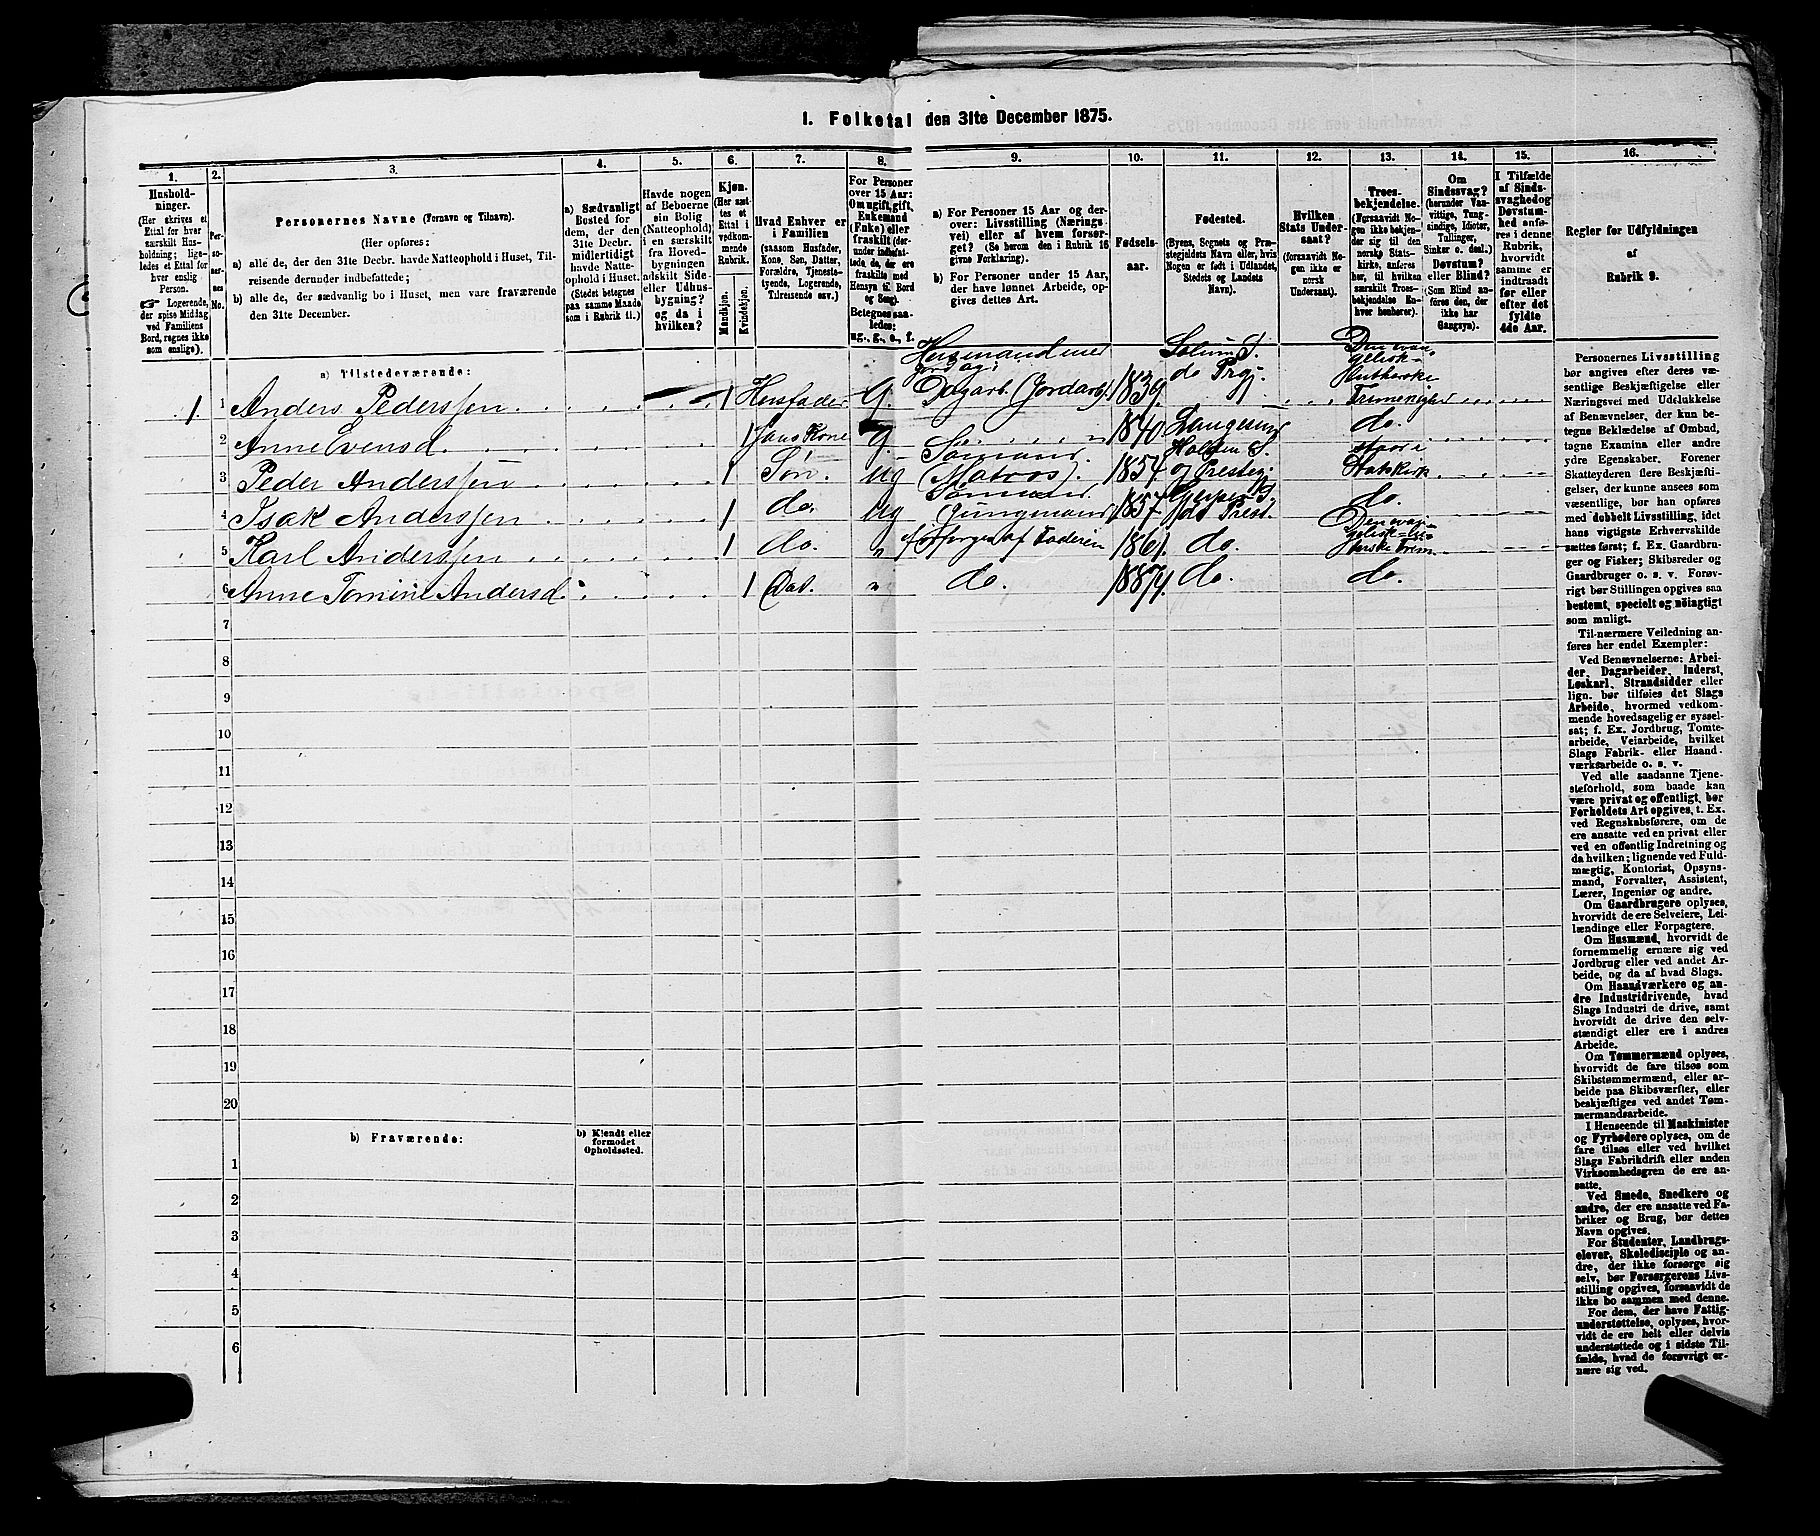 I. Folketal den 31te December 1875.
1.
Husholdninger.
(Her skrives et
Ettal for hver
særskilt Husholdning;
ligeledes et Ettal for
hver enslig
Person.
☞ Logerende,
der spise Middag
ved Familiens
Bord, regnes ikke
som enslige).
2.
Personernes
No.
3.
Personernes Navne (Fornavn og Tilnavn).
(Her opføres:
a) alle de, der den 31te Decbr. havde Natteophold i Huset, Tilreisende
derunder indbefattede;
b) alle de, der sædvanlig bo i Huset, men vare fraværende
den 31te December.
4.
a) Sædvanligt
Bosted for
dem, der den
31te Decbr.
midlertidigt
havde Natteophold
i Huset.
(Stedet betegnes
paa samme Maade
som i Rubrik 11.)
5.
Havde nogen
af Beboerne
sin Bolig
(Natteophold)
i en særskilt
fra Hovedbygningen
adskilt Side-
eller Udhusbygning?
og da i
hvilken?
6.
Kjøn.
(Her sættes
et
Ettal i
vedkommende
Rubrik.
Mandkjøn.
Kvindekjøn.
7.
Hvad Enhver er
i Familien
(saasom Husfader,
Kone, Søn, Datter,
Forældre, Tjenestetyende,
Logerende,
Tilreisende osv.)
8.
For Personer
over 15 Aar:
Om ugift, gift,
Enkemand
(Enke) eller
fraskilt (derunder
indbefattede
de, der ere
fraskilte med
Hensyn til Bord
og Seng).
Betegnes saaledes:
ug., g., e., f.
9.
a) For Personer 15 Aar og derover:
Livsstilling (Næringsvei)
eller af hvem forsørget?
(Se herom den i Rubrik 16
givne Forklaring).
b) For Personer under 15 Aar,
der have lønnet Arbeide, opgives
dettes Art.
10.
Fødselsaar.
11.
Fødested.
(Byens, Sognets og Præstegjeldets
Navn eller, hvis
Nogen er født i Udlandet,
Stedets og Landets
Navn).
12.
Hvilken
Stats Undersaat?
(forsaavidt Nogen
ikke er
norsk
Undersaat).
13.
Troesbekjendelse.
(Forsaavidt Nogen
ikke bekjender
sig til den
norske Statskirke,
anføres
her, til hvilken
særskilt Troesbekjendelse
Enhver
henhører).
14.
Om
Sindssvag?
(herunder Vanvittige,
Tungsindige,
Idioter,
Tullinger,
Sinker o. desl.)
Døvstum?
eller Blind?
(Som Blind anføres
den, der
ikke har
Gangsyn).
15.
I Tilfælde
af Sindssvaghed
og
Døvstumhed
anføres
i denne
Rubrik,
hvorvidt
samme er
indtraadt
før eller
efter det
fyldte
4de Aar.
16.
Regler for Udfyldningen
af
Rubrik 9.
a) Tilstedeværende:
Husmand med
Jord og
Solum S.
do Prgj.
Den evangelisk-
lutherske
1. 1 Anders Pederssen 1 Husfader G. Dagarb. (Jordarb) 1839 Frimenighed
2 Anne Evensd. 1 hans Kone G. do 1840 Langesund do.
3 Peder Anderssen 1 Søn. ug Sømand (Matros). 1854 Holden S. og Presteg. Statskirk
4 Isak Anderssen 1 do. ug Sømand (Jungmand) 1857 Gjerpen S. og Prest. do.
5 Karl Anderssen 1 do. " forsørges af Faderen 1861. do. Den evangelisk-lutherske Frim
6 Anne Tomine Andersd. 1 Dat. " do. 1874. do. do.
7
8
9
10
11
12
13
14
15
16
17
18
19
20
b) Fraværende:
b) Kjendt eller
formodet
Opholdssted.
1
2
3
4
5
6
Personernes Livsstilling
bør angives efter deres væsentlige
Beskjæftigelse eller
Næringsvei med Udelukkelse
af Benævnelser, der kun betegne
Beklædelse af Ombud,
tagne Examina eller andre
ydre Egenskaber. Forener
Skatteyderen flere Beskjæftigelser,
der kunne ansees som
væsentlige, bør han opføres
med dobbelt Livsstilling, idet
hans vigtigste Erhvervskilde
sættes først; f. Ex. Gaardbruger
og Fisker; Skibsreder og
Gaardbruger o. s. v. Forøvrigt
bør Stillingen opgives saa
bestemt, specielt og nöiagtigt
som muligt.
Til nærmere Veiledning anføres
her endel Exempler:
Ved Benævnelserne: Arbeider,
Dagarbeider, Inderst,
Løskarl, Strandsidder eller
lign. bør tilføies det Slags
Arbeide, hvormed vedkommende
hovedsagelig er sysselsat;
f. Ex. Jordbrug, Tomtearbeide,
Veiarbeide, hvilket
Slags Fabrik- eller Haandværksarbeide
o. s. v.
Ved alle saadanne Tjenesteforhold,
som baade kan
være privat og offentligt, bør
Forholdets Art opgives, t. Ex.
ved Regnskabsførere, om de
ere ansatte ved en privat eller
ved en offentlig Indretning og
da hvilken; lignende ved Fuldmægtig,
Kontorist, Opsynsmand,
Forvalter, Assistent,
Lærer, Ingeniør og andre.
Om Gaardbrugere oplyses,
hvorvidt de ere Selveiere, Leilændinge
eller Forpagtere.
Om Husmænd, hvorvidt de
fornemmelig ernære sig ved
Jordbrug eller ved andet Arbeide,
og da af hvad Slags.
Om Haandværkere og andre
Industridrivende, hvad
Slags Industri de drive, samt
hvorvidt de drive den selvstændigt
eller ere i andres
Arbeide.
Om Tømmermænd oplyses,
hvorvidt de fare tilsøs som
Skibstømmermænd, eller arbeide
paa Skibsværfter, eller
beskjæftiges ved andet Tømmermandsarbeide.
I Henseende til Maskinister
og Fyrbødere oplyses, om de
fare tilsøs eller ved hvilket
Slags Fabrikdrift eller anden
Virksomhedsgren de ere ansatte.
Ved Smede, Snedkere og
andre, der ere ansatte ved Fabriker
og Brug, bør dettes
Navn opgives.
For Studenter, Landbrugselever,
Skoledisciple og andre,
der ikke forsørge sig
selv, bør Forsørgerens Livsstilling
opgives, forsaavidt de
ikke bo sammen med denne.
For dem, der have Fattigunderstøttelse,
oplyses, hvorvidt
de ere helt eller delvis
understøttede og i sidste Tilfælde,
hvad de forøvrigt ernære
sig ved.